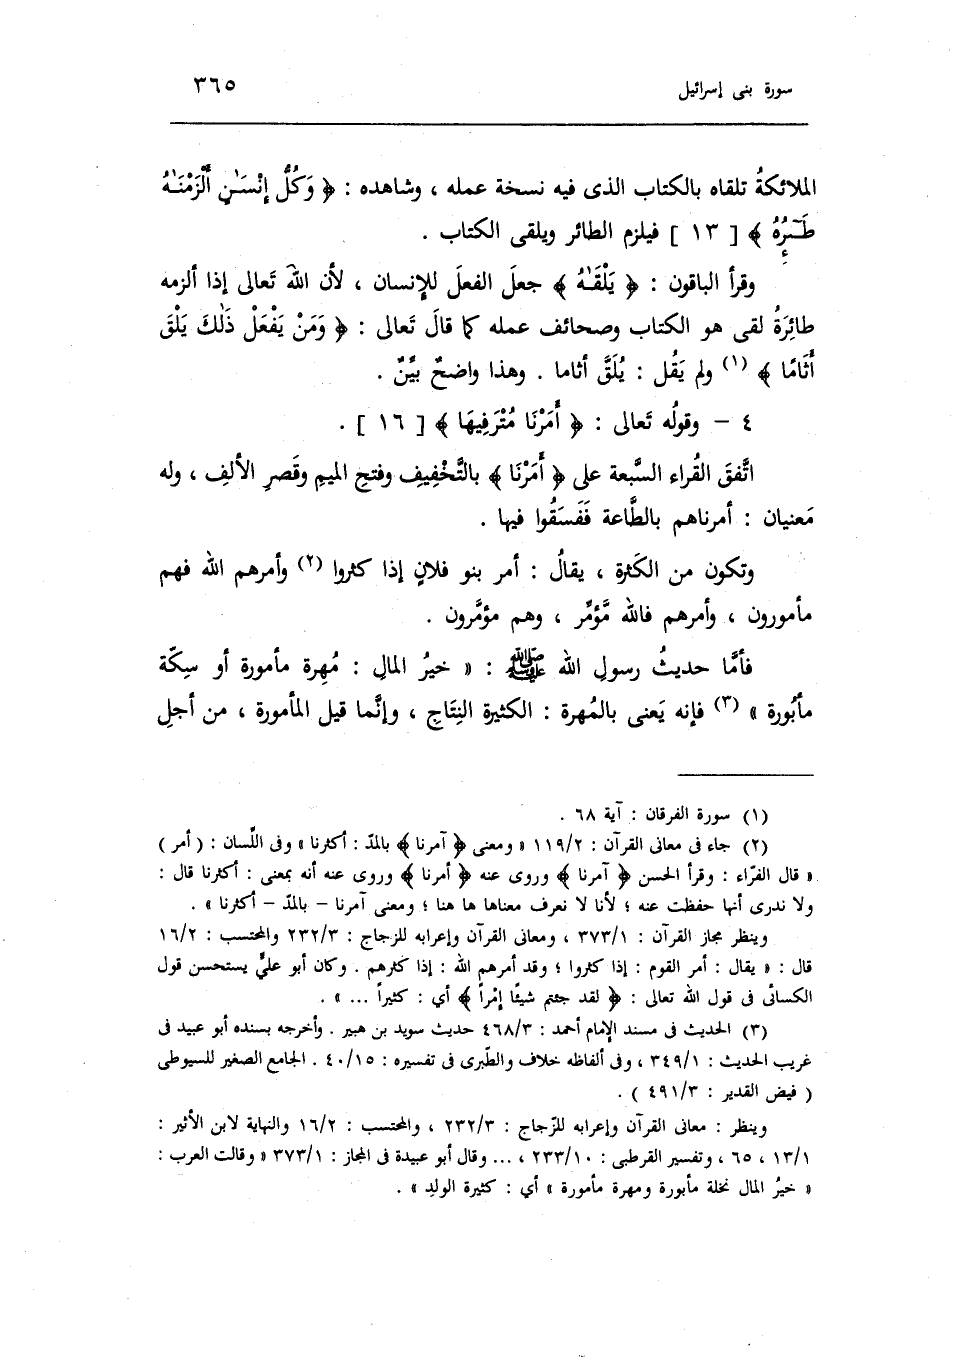 سورة بنى إسرائيل ٣٦٥
الملائكةُ تلقاه بالكتاب الذى فيه نسخة عمله ، وشاهده : ﴿ وَكُلَّ إِنْسَـٰنٍ أَلْزَمْنَـٰهُ
طَـٰٓئِرَهُ ﴾ [ ١٣ ] فيلزم الطائر ويلقى الكتاب .
وقرأ الباقون : ﴿ يَلْقَـٰهُ ﴾ جعلَ الفعلَ للإنسان ، لأن اللهَ تَعالى إذا ألزمه
طائِرَهُ لقى هو الكتاب وصحائف عمله كما قالَ تَعالى : ﴿ وَمَنْ يَفْعَلْ ذَٰلكَ يَلْقَ
أَثَامًا ﴾ (١) ولم يَقُل : يُلَقَّ أثاما . وهذا واضحٌ بيِّنٌ .
٤ – وقولُه تَعالى : ﴿ أَمَرْنَا مُتْرَفِيهَا ﴾ [ ١٦ ] .
اتَّفقَ القُراء السَّبعة على ﴿ أَمَرْنَا ﴾ بالتَّخْفِيفِ وفتحِ الميمِ وقَصرِ الألفِ ، وله
مَعنيان : أمرناهم بالطَّاعة فَفَسَقُوا فيها .
وتكون من الكَثرة ، يقالُ : أمر بنو فلانٍ إذا كثروا (٢) وأمرهم الله فهم
مأمورون ، وأمرهم فالله مُؤَمِّر ، وهم مؤمَّرون .
فأمَّا حديثُ رسولِ الله ﷺ : « خيرُ المالِ : مُهرة مأمورة أو سِكّة
مأبُورة » (٣) فإنه يَعنى بالمُهرة : الكثيرة النِتَاجِ ، وإنَّما قيل المأمورة ، من أجلِ
(١) سورة الفرقان : آية ٦٨ .
(٢) جاء فى معانى القرآن : ١١٩/٢ « ومعنى ﴿ آمرنا ﴾ بالمدّ : أكثرنا » وفى اللِّسان : ( أمر )
« قال الفرّاء : وقرأ الحسن ﴿ آمرنا ﴾ وروى عنه ﴿ أمرنا ﴾ وروى عنه أنه بمعنى : أكثرنا قال :
ولا ندرى أنها حفظت عنه ؛ لأنا لا نعرف معناها ها هنا ؛ ومعنى آمرنا – بالمدّ – أكثرنا » .
وينظر مجاز القرآن : ٣٧٣/١ ، ومعانى القرآن وإعرابه للزجاج : ٢٣٢/٣ والمحتسب : ١٦/٢
قال : « يقال : أمر القوم : إذا كثروا ؛ وقد أمرهم الله : إذا كثرهم . وكان أبو علىٍّ يستحسن قول
الكسائى فى قول الله تعالى : ﴿ لقد جئتم شيئًا إمْراً ﴾ أي : كثيراً ... » .
(٣) الحديث فى مسند الإمام أحمد : ٤٦٨/٣ حديث سويد بن هبير . وأخرجه بسنده أبو عبيد فى
غريب الحديث : ٣٤٩/١ ، وفى ألفاظه خلاف والطّبرى فى تفسيره : ٤٠/١٥ . الجامع الصغير للسيوطى
( فيض القدير : ٤٩١/٣ ) .
وينظر : معانى القرآن وإعرابه للزّجاج : ٢٣٢/٣ ، والمحتسب : ١٦/٢ والنهاية لابن الأثير :
١٣/١ ، ٦٥ ، وتفسير القرطبى : ٢٣٣/١٠ ، ... وقال أبو عبيدة فى المجاز : ٣٧٣/١ « وقالت العرب :
« خيرُ المال نخلة مأبورة ومهرة مأمورة » أي : كثيرة الولدِ » .